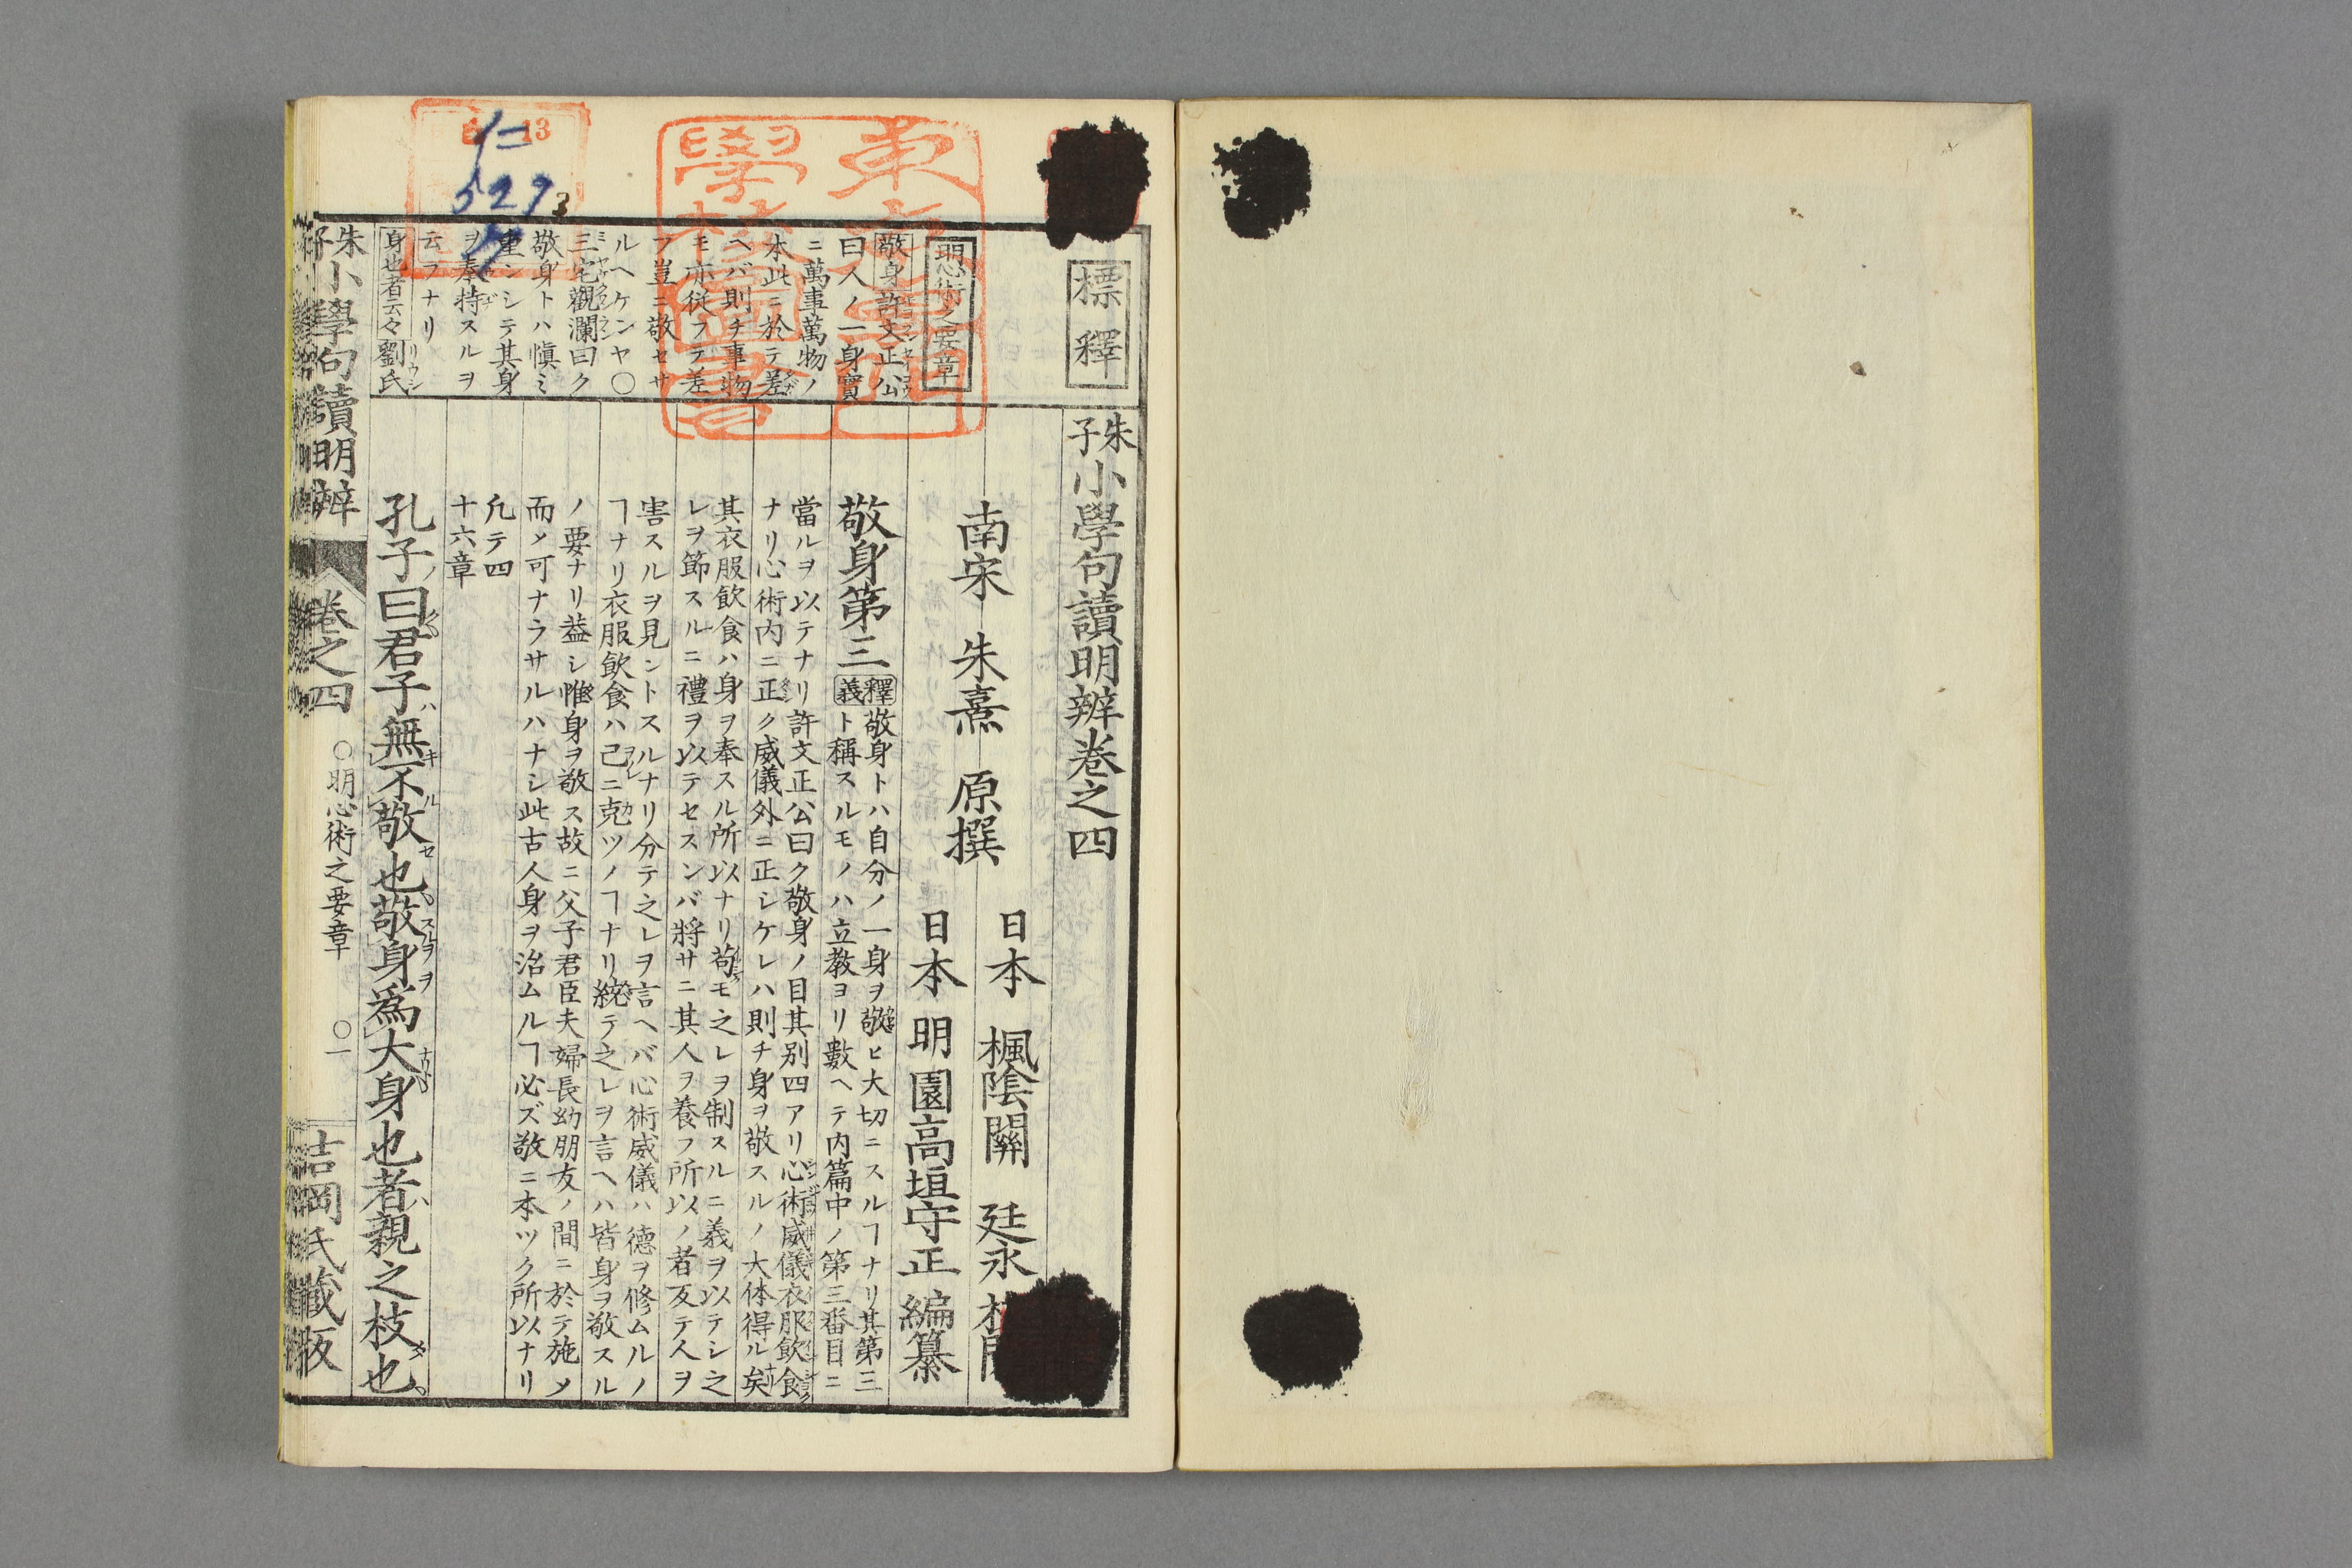 標釋
朱子小學句讀明辨卷之四
南宋 朱熹 原撰
日本 楓陰關 廷永
日本 明園高垣守正 編纂
敬身第三
釋義
敬身トハ自分ノ一身ヲ敬ヒ大切ニスルヿナリ其第三
ト稱スルモノハ立教ヨリ數ヘテ内篇中ノ第三番目ニ
當ルヲ以テナリ許文正公曰ク敬身ノ目其別四アリ心術威儀衣服飲食
ナリ心術内ニ正ク威儀外ニ正シケレハ則チ身ヲ敬スルノ大体得ル矣
其衣服飲食ハ身ヲ奉スル所以ナリ苟モ之レヲ制スルニ義ヲ以テシ之
レヲ節スルニ禮ヲ以テセスンバ將サニ其人ヲ養フ所以ノ者反テ人ヲ
害スルヲ見ントスルナリ分テ之レヲ言ヘバ心術威儀ハ徳ヲ修ムルノ
ヿナリ衣服飲食ハ己ニ克ツノヿナリ統テ之レヲ言ヘハ皆身ヲ敬スル
ノ要ナリ蓋シ惟身ヲ敬ス故ニ父子君臣夫婦長幼朋友ノ間ニ於テ施メ
而メ可ナラサルハナシ此古人身ヲ治ムルヿ必ズ敬ニ本ツク所以ナリ
凢テ四
十六章
孔子曰君子無不敬也敬身爲大身也者親之枝也
明心術之要章
敬身許文正公
曰人ノ一身實
ニ萬事萬物ノ
本此ニ於テ差
ヘバ則チ事物
モ亦從フテ差
フ豈ニ敬セサ
ルヘケンヤ〇
三宅觀瀾曰ク
敬身トハ愼ミ
重ンシテ其身
ヲ奉持スルヲ
云フナリ
身也者云々劉氏
朱子小學句讀明辨 卷之四 〇明心術之要章 〇一 吉岡氏藏版
13
527
3